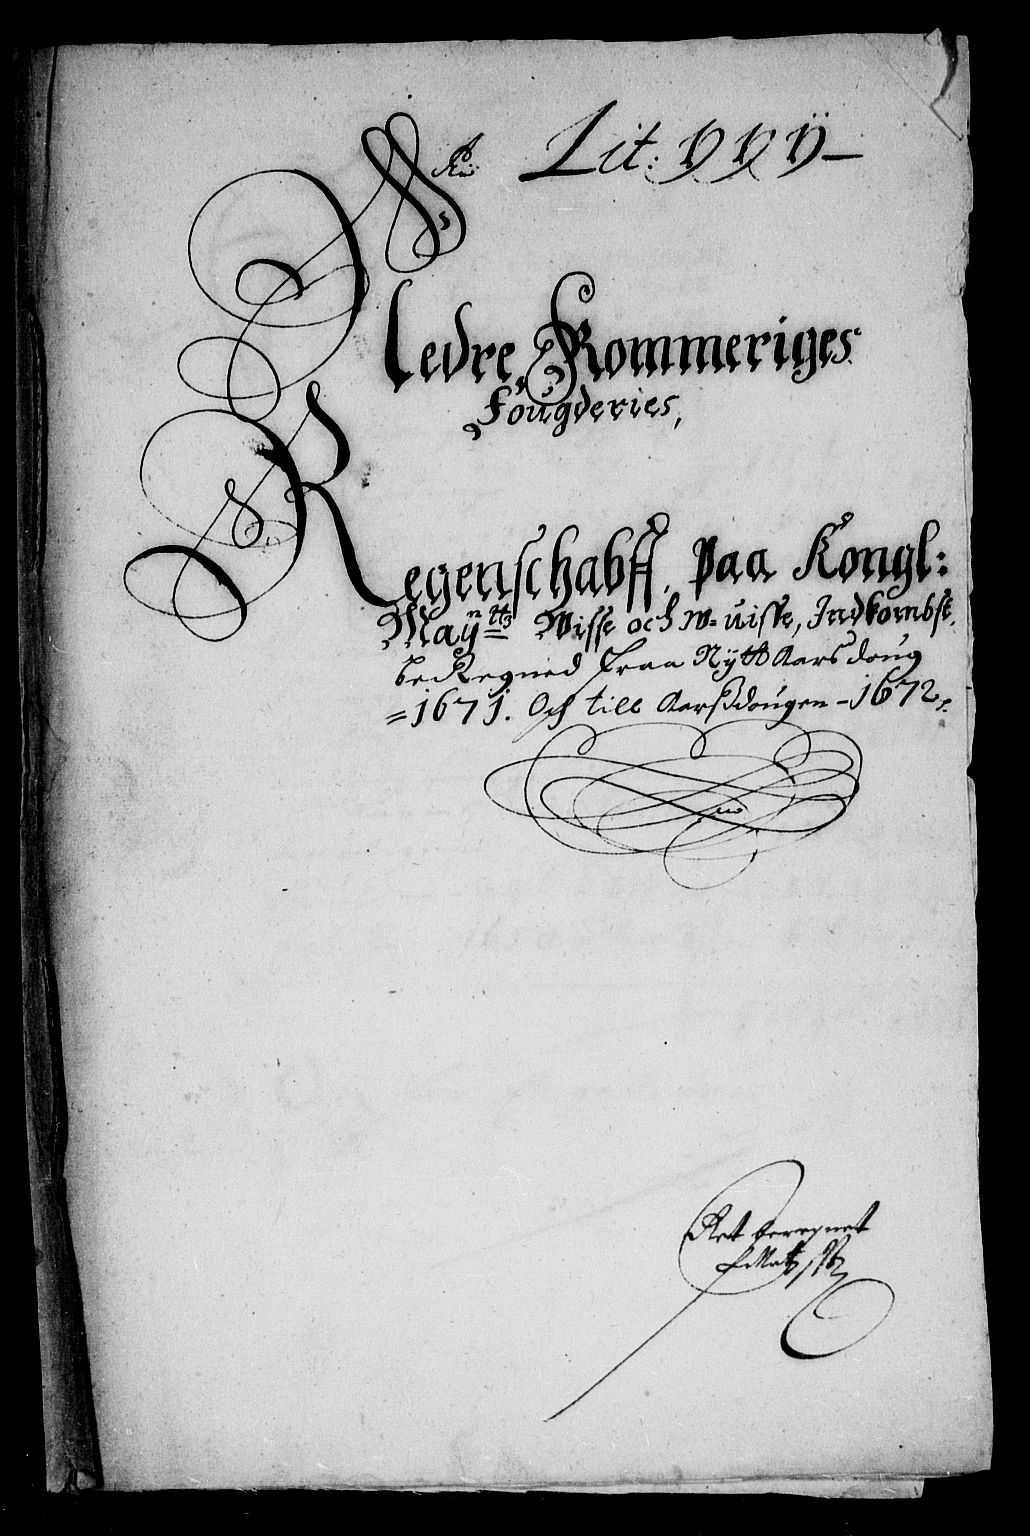 Lit: ÿÿÿ
Nedre Rommeriges
Fougderies,
Regenschabff, paa Kongl:
Mayntts Wisse och W-uisse, Indkombst,
beRegned fraa Nytt Aarsdoug
=1671. Och till Aarßdougen-1672.
Ret beregnet